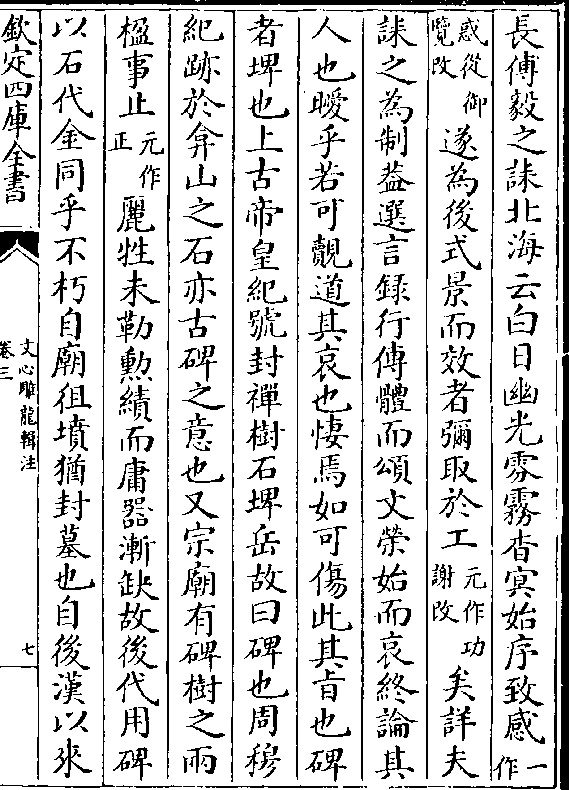 長傅毅之誄北海云白日幽光雰霧杳冥始序致感一作
感從御覽改遂為後式景而效者彌取於工元作功謝改矣詳夫
誄之為制葢選言録行傳體而頌文榮始而哀終論其
人也曖乎若可覿道其哀也悽焉如可傷此其旨也碑
者埤也上古帝皇紀號封禪樹石埤岳故曰碑也周穆
紀跡於弇山之石亦古碑之意也又宗廟有碑樹之兩
楹事止元作正麗牲未勒勲績而庸器漸缺故後代用碑
以石代金同乎不朽自廟徂墳猶封墓也自後漢以來
欽定四庫全書
文心雕龍輯注
卷三
七